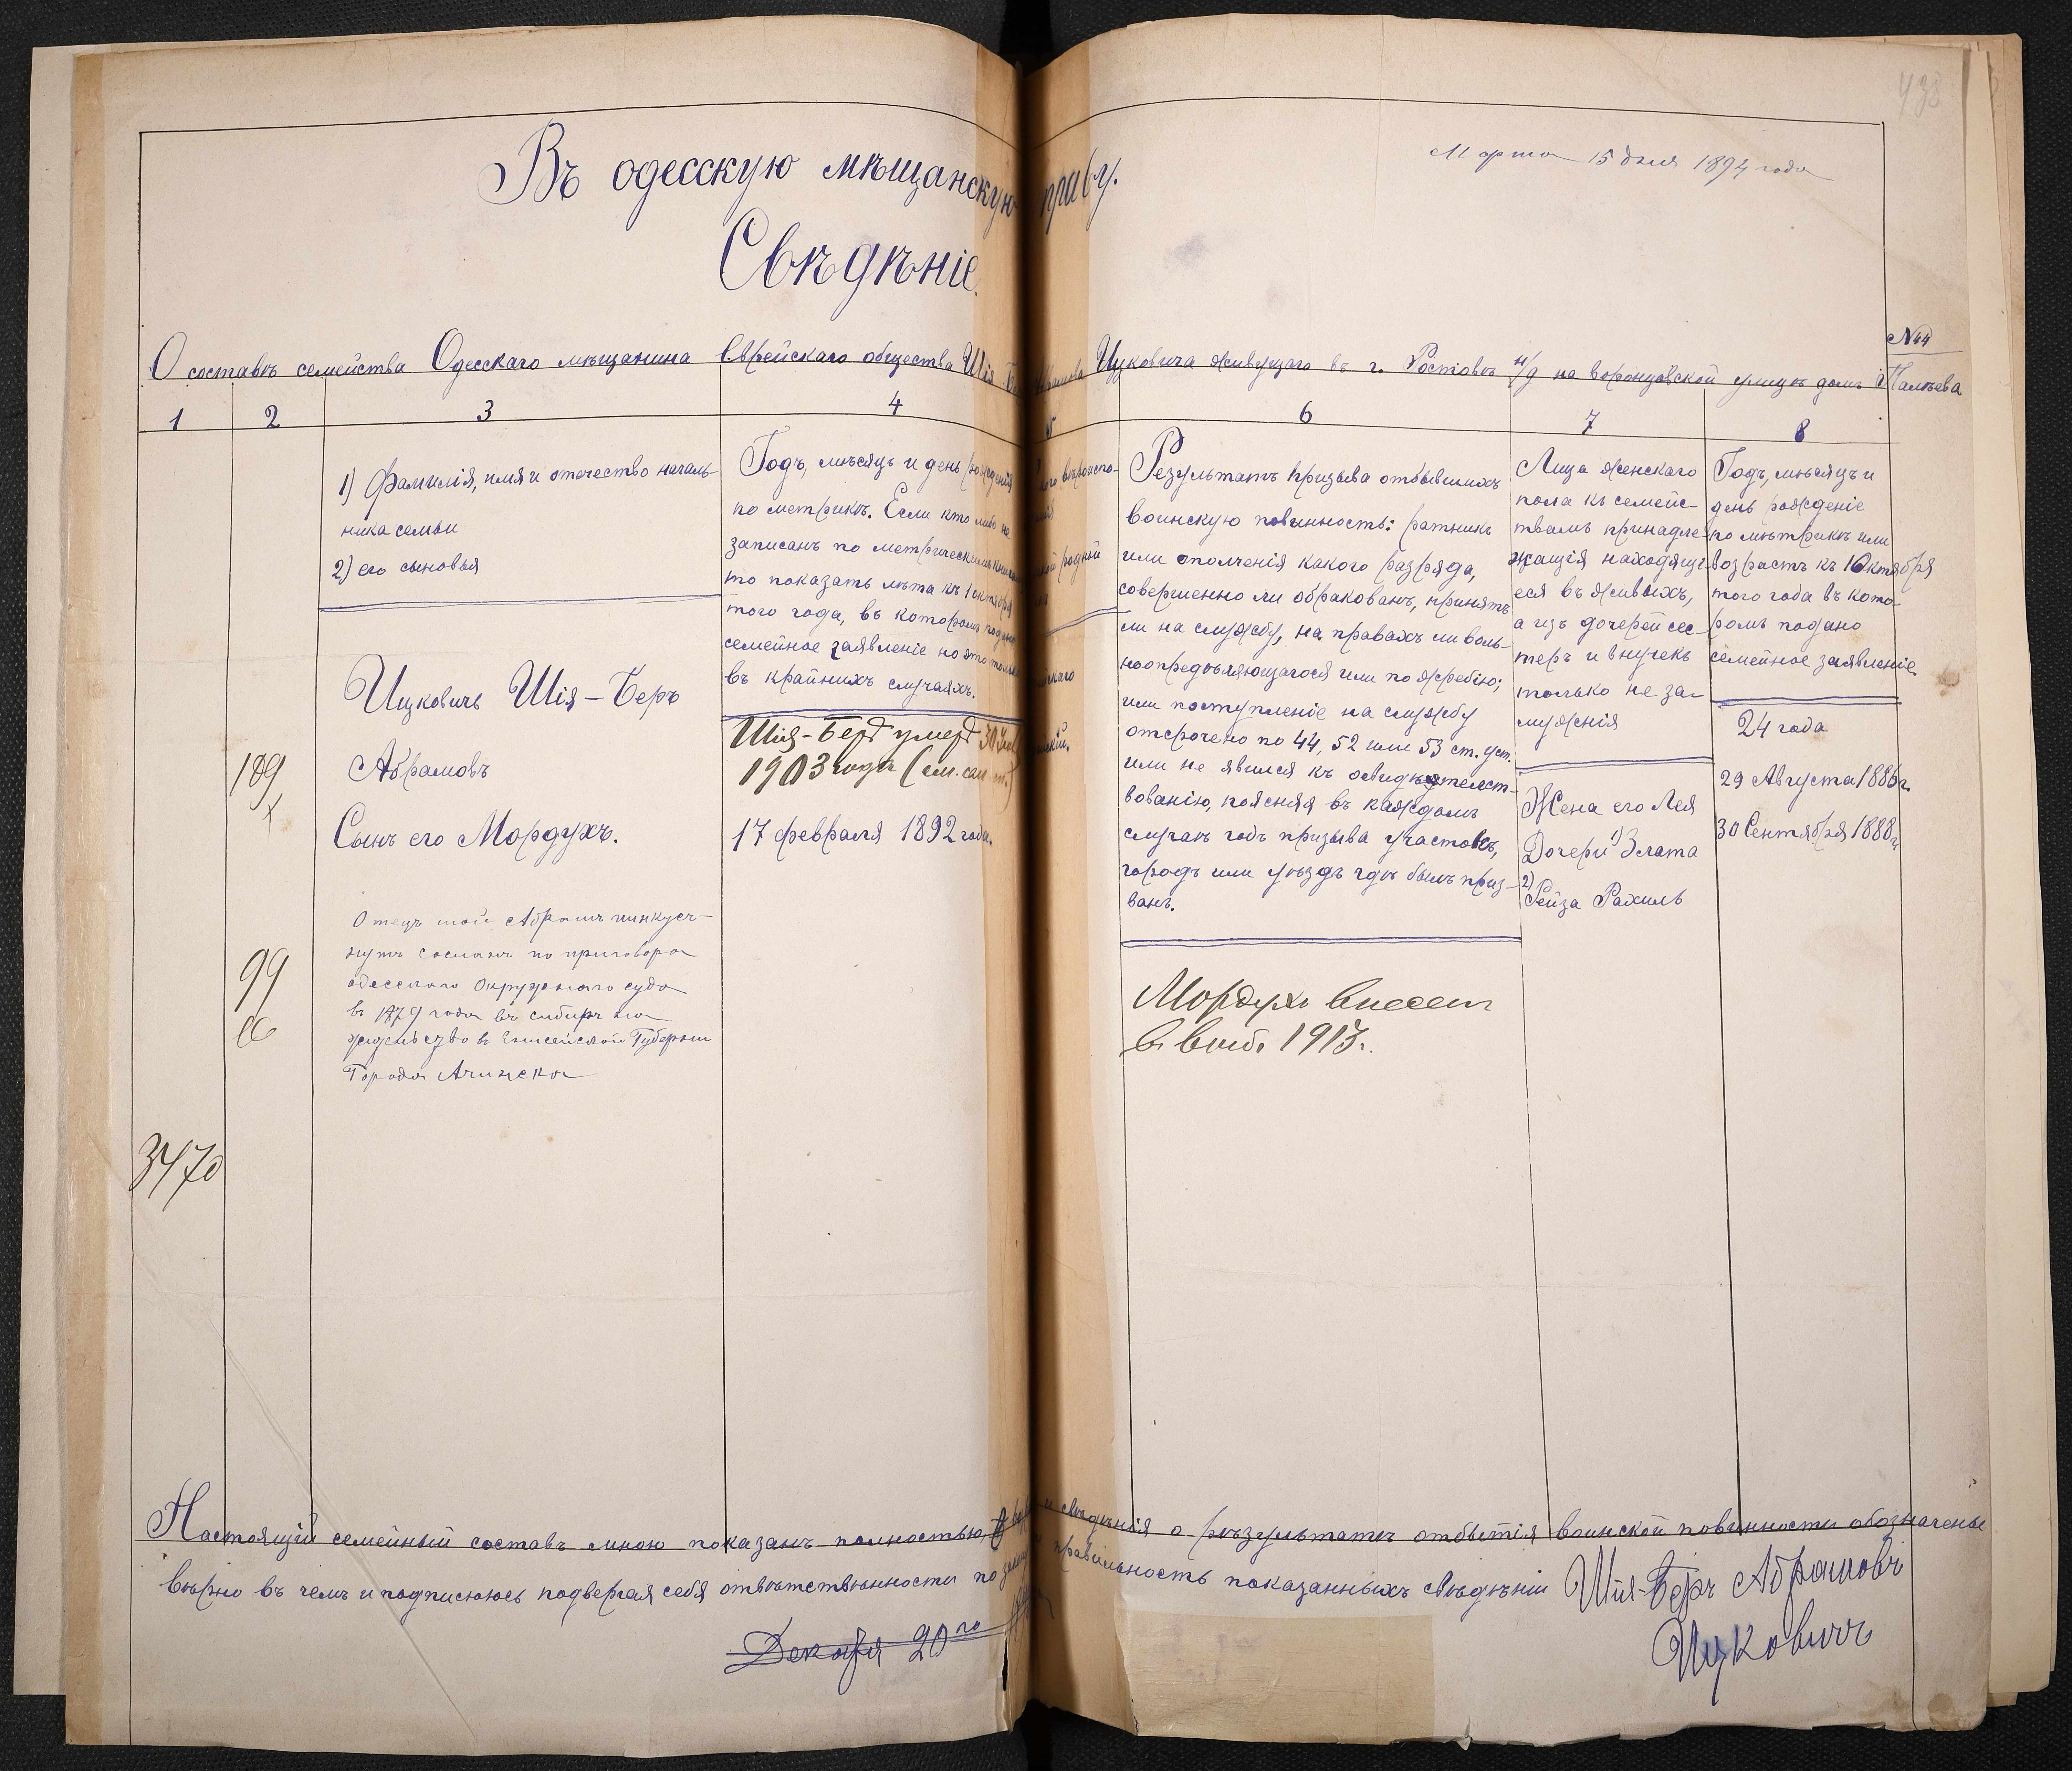 438
Марта 15 дня 1894 года
Въ одесскую мѣщанскую
праву.
Свѣдѣніе.
№ 44
О составѣ семейства Одесскаго мѣщанина Еврейскаго общества Шія
Ицковича живущаго въ г. Ростовѣ н/д на воронцовской улицѣ домъ
1 2 3 4
6 7 8
1) Фамилія, имя и отечество началь-
ника семьи
2) его сыновья
Ицковичъ Шія-Беръ
Абрамовъ
Сынъ его Мордухъ.
109
99
3470
Отецъ мой Абрамъ
сосланъ по приговора
одесскаго Окружнаго суда
въ 1879 года въ сибирь на
жительство в Енисейской Губернии
Города Ачинска
Годъ, мѣсяцъ и день рожденія
по метрикѣ. Если кто либо не
записанъ по метрическимъ
то показать лѣта къ 1 октября
того года, въ которомъ подано
семейное заявленіе но это только
въ крайнихъ случаяхъ.
Шія-Берѣ умеръ 30
1903 года (см.
17 февраля 1892 года.
родной
Результатъ призыва отбывшихъ
воинскую повинность: ратникъ
или ополченія какого разряда,
совершенно ли обракованъ, принятъ
ли на службу, на правахъ ли воль-
ноопредѣляющагося или по жребію;
или поступленіе на службу
отсрочено по 44, 52 или 53 ст. уст.
или не явился къ освидѣтельст-
вованію, поясняя въ каждомъ
случаѣ годъ призыва участокъ,
городъ или уѣздъ гдѣ былъ приз-
ванъ.
Мордухъ внесен
в 1913.
Лица женскаго
пола къ семейс-
твамъ принадле-
жащія находящі-
еся въ живыхъ,
а изъ дочерей сес-
теръ и внучекъ
только не за-
мужнія
Жена его Лея
Дочери 1) Злата
2)
Рейза Рахиль
Годъ, мѣсяцъ и
день рожденіе
по мѣтрикѣ или
возрастъ къ 1 Октября
того года въ кото-
ромъ подано
семейное заявленіе.
24 года
29 Августа 1886 г.
30 Сентября 1888 г.
Настоящій семейный составъ мною показанъ полностью,
свѣдѣнія о рѣзультатѣ отбытія воинской повинности обозначены
вѣрно въ чемъ и подписуюсь подвергая себя отвѣтствѣнности по
правильность показанныхъ свѣдѣній Шія-Беръ Абрамовъ
Ицковичъ
Декабря 20го